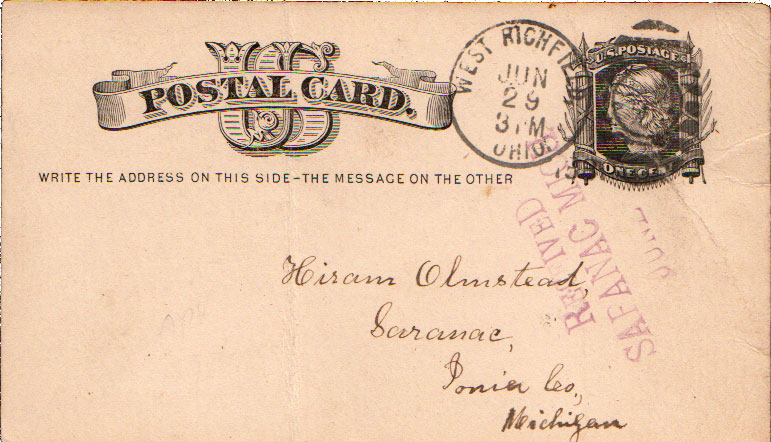 US
POSTAL CARD.
WRITE THE ADDRESS ON THIS SIDE-THE MESSAGE ON THE OTHER
WEST RICHFIELD
JUN
29
3 PM
OHIO
U.S. POSTAGE
ONE CENT
RECEIVED
SARANAC MICH
JUN
Hiram Olmstead,
Saranac,
Ionia Co,
Michigan